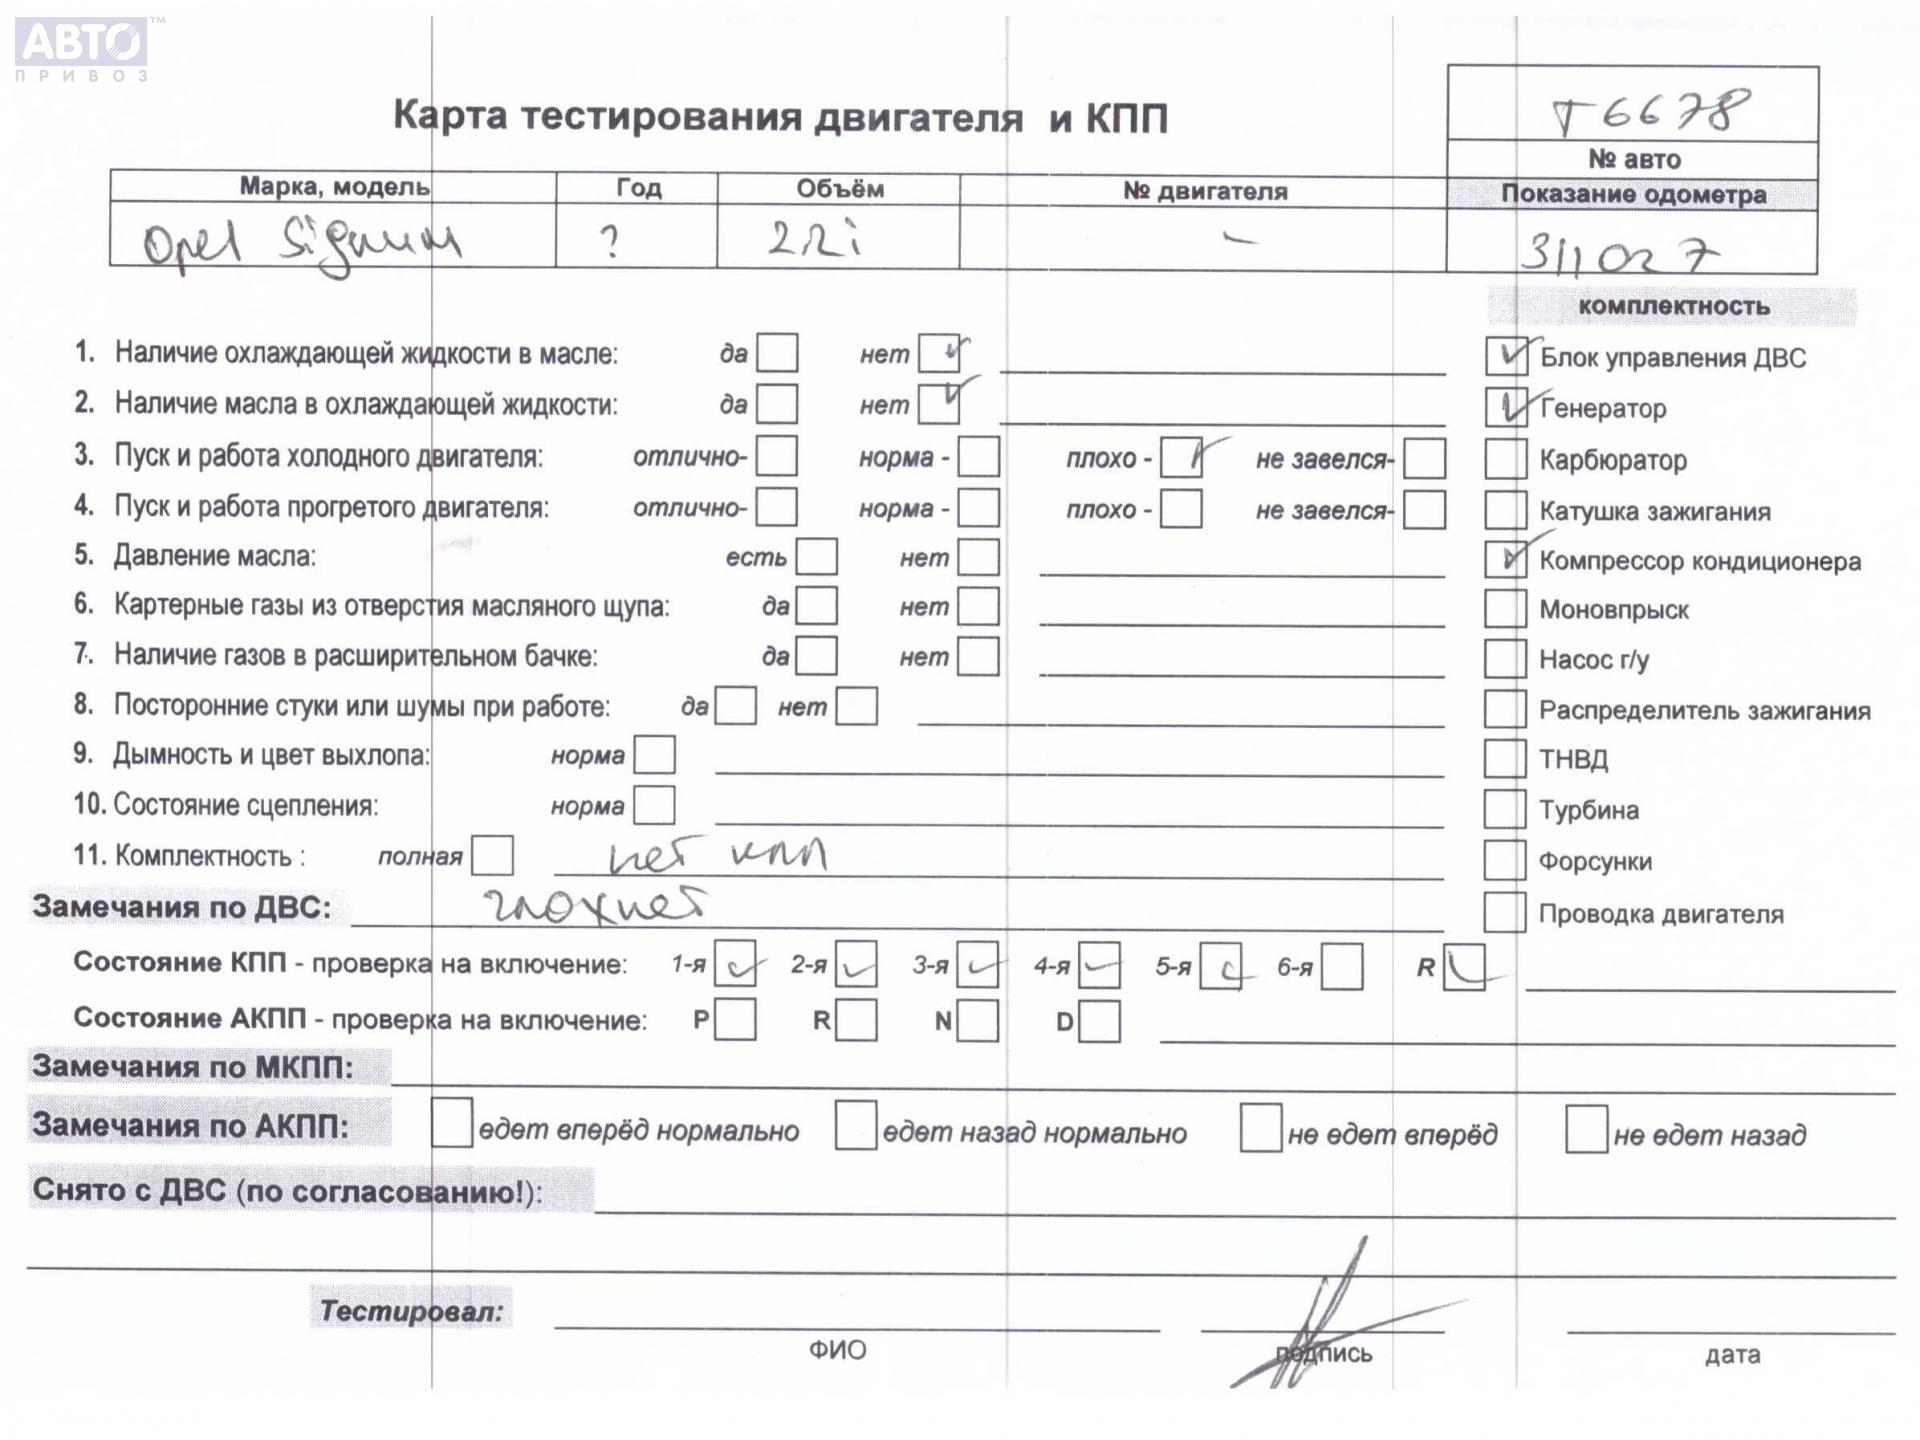 АВТО™
ПРИВОЗ
Карта тестирования двигателя и КПП
Т6678
№ авто
Марка, модель Год Объём № двигателя Показание одометра
Opel Signum ? 2.2i - 311027
комплектность
1. Наличие охлаждающей жидкости в масле: да нет ✓ ✓ Блок управления ДВС
2. Наличие масла в охлаждающей жидкости: да нет ✓ ✓ Генератор
3. Пуск и работа холодного двигателя: отлично- норма - плохо - ✓ не завелся- Карбюратор
4. Пуск и работа прогретого двигателя: отлично- норма - плохо - не завелся- Катушка зажигания
5. Давление масла: есть нет ✓ Компрессор кондиционера
6. Картерные газы из отверстия масляного щупа: да нет Моновпрыск
7. Наличие газов в расширительном бачке: да нет Насос г/у
8. Посторонние стуки или шумы при работе: да нет Распределитель зажигания
9. Дымность и цвет выхлопа: норма ТНВД
10. Состояние сцепления: норма Турбина
11. Комплектность : полная нет кпп Форсунки
Замечания по ДВС: глохнет Проводка двигателя
Состояние КПП - проверка на включение: 1-я ✓ 2-я ✓ 3-я ✓ 4-я ✓ 5-я ✓ 6-я R ✓
Состояние АКПП - проверка на включение: P R N D
Замечания по МКПП:
Замечания по АКПП: едет вперёд нормально едет назад нормально не едет вперёд не едет назад
Снято с ДВС (по согласованию!):
Тестировал:
ФИО подпись дата